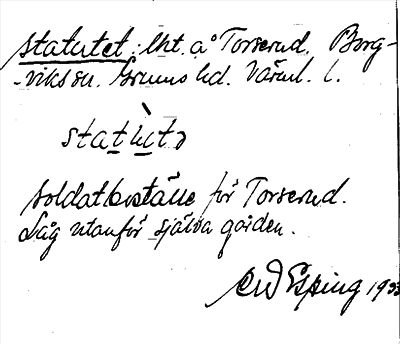 Statutet: lht. a° Torserud. Borg-
-viks sn. Grums hd. Värml. l.
statùtə
Soldatboställe för Torserud.
Låg utanför själva gården.